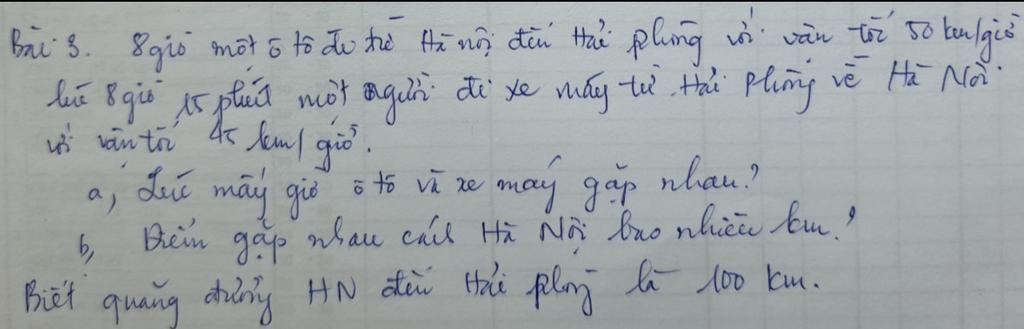 Bài 3. 8 giờ một ô tô đi từ Hà nội đến Hải phòng với vận tốc 50 km/giờ
lúc 8 giờ 15 phút một người đi xe máy từ Hải Phòng về Hà Nội
với vận tốc 45 km/giờ.
a, Lúc mấy giờ ô tô và xe máy gặp nhau?
b, Điểm gặp nhau cách Hà Nội bao nhiêu km?
Biết quãng đường HN đến Hải phòng là 100 km.